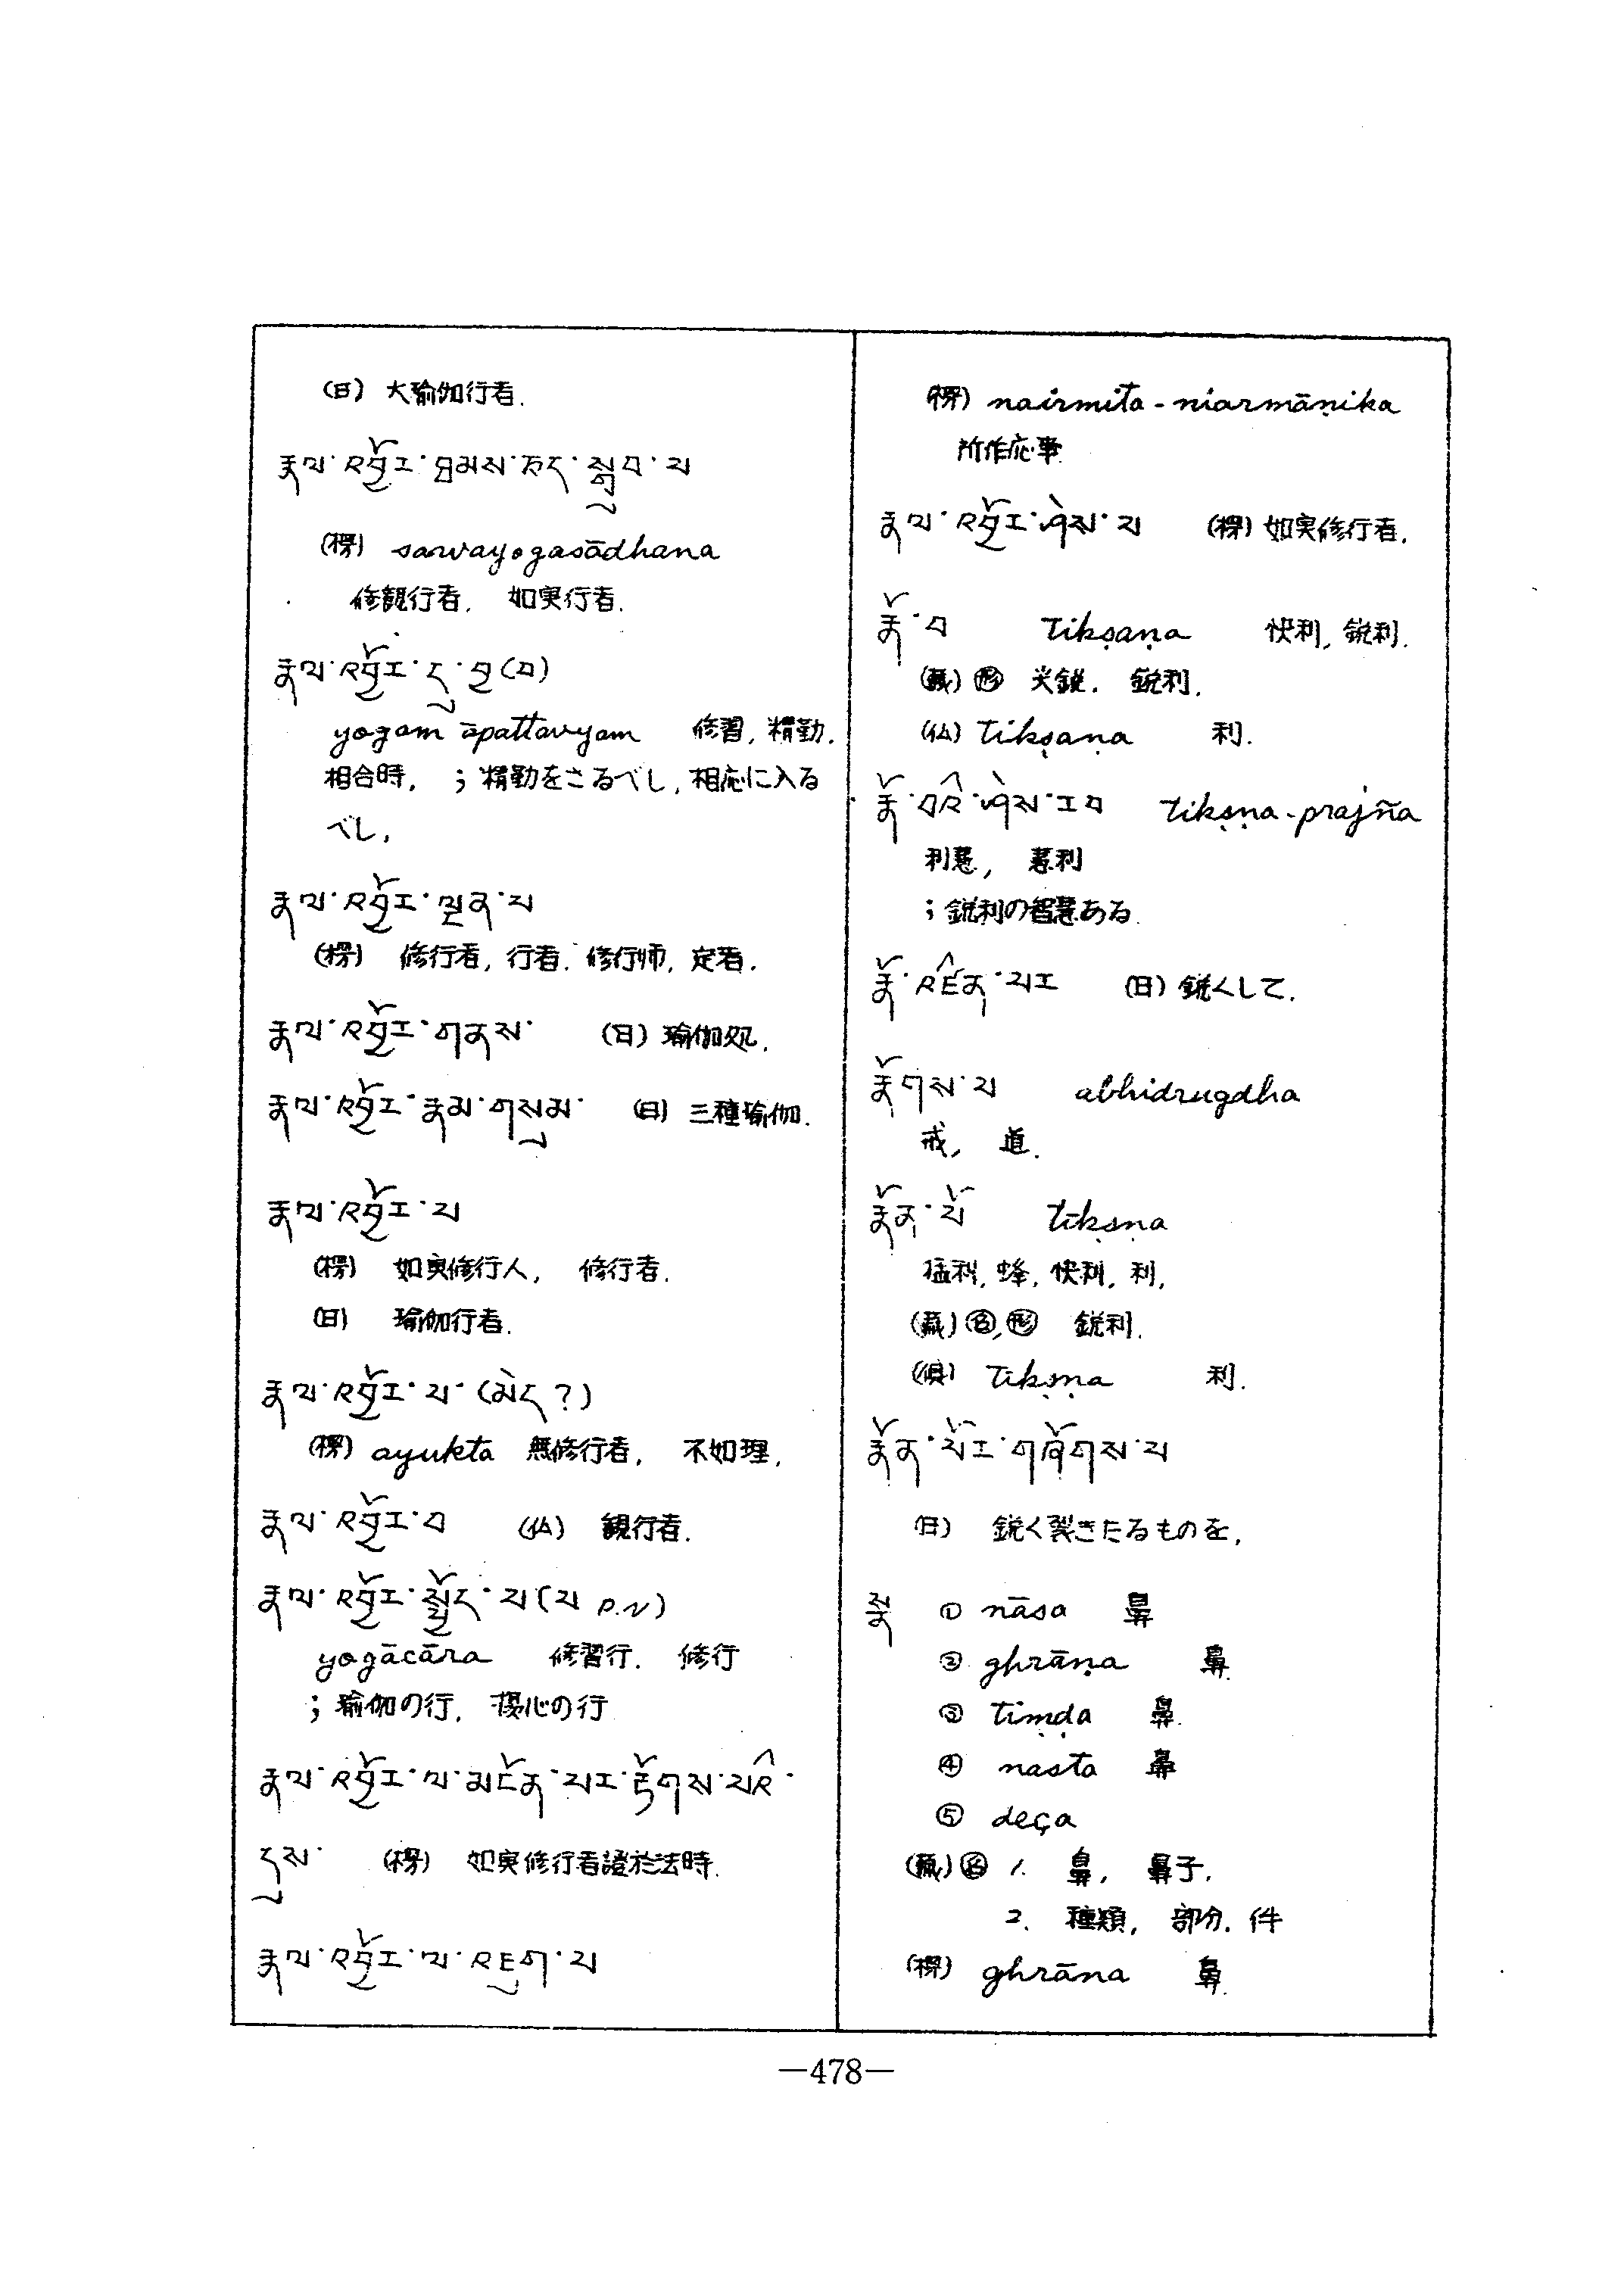 (日) 大瑜伽行者.
རྣལ་འབྱོར་ཐམས་ཅད་སྒྲུབ་པ
(楞) sarvayogasādhana
修観行者. 如実行者.
རྣལ་འབྱོར་དུ་བྱ(བ)
yogam āpattavyam 修習, 精勤.
相合時, ; 精勤をさるべし, 相応に入る
べし,
རྣལ་འབྱོར་ལྡན་པ
(楞) 修行者, 行者. 修行师, 定者.
རྣལ་འབྱོར་གནས་ (日) 瑜伽処.
རྣལ་འབྱོར་རྣམ་གསུམ་ (日) 三種瑜伽.
རྣལ་འབྱོར་པ
(楞) 如実修行人, 修行者.
(日) 瑜伽行者.
རྣལ་འབྱོར་པ་(མེད?)
(楞) ayukta 無修行者, 不如理,
རྣལ་འབྱོར་བ (仏) 観行者.
རྣལ་འབྱོར་སྤྱོད་པ(པ P.N)
yogācāra 修習行. 修行
; 瑜伽の行, 擾心の行
རྣལ་འབྱོར་ལ་མངོན་པར་རྟོགས་པའི་
དུས་ (楞) 如実修行者證於法時.
རྣལ་འབྱོར་ལ་འཇུག་པ
(楞) nairmita-niarmāṇika
所作応事
རྣལ་འབྱོར་ཤེས་པ (楞) 如実修行者.
རྣོ་བ tikṣaṇa 快利, 鋭利.
(蔵) 形 尖鋭. 鋭利.
(仏) tikṣaṇa 利.
རྣོ་བའི་ཤེས་རབ tikṣṇa-prajñā
利慧, 慧利
; 鋭利の智慧ある.
རྣོ་འཛིན་པར (日) 鋭くして.
རྣོགས་པ abhidrugdha
戒, 道.
རྣོན་པོ tīkṣṇa
猛利, 蜂, 快利, 利,
(蔵) 名, 形 鋭利.
(倶) tikṣṃa 利.
རྣོན་པོར་གཤོགས་པ
(日) 鋭く裂きたるものを,
སྣ ① nāsa 鼻
② ghrāṇa 鼻
③ tiṃḍa 鼻.
④ nasta 鼻
⑤ deça
(蔵) 名 1. 鼻, 鼻子,
2. 種類, 部分. 件
(楞) ghrāna 鼻.
—478—